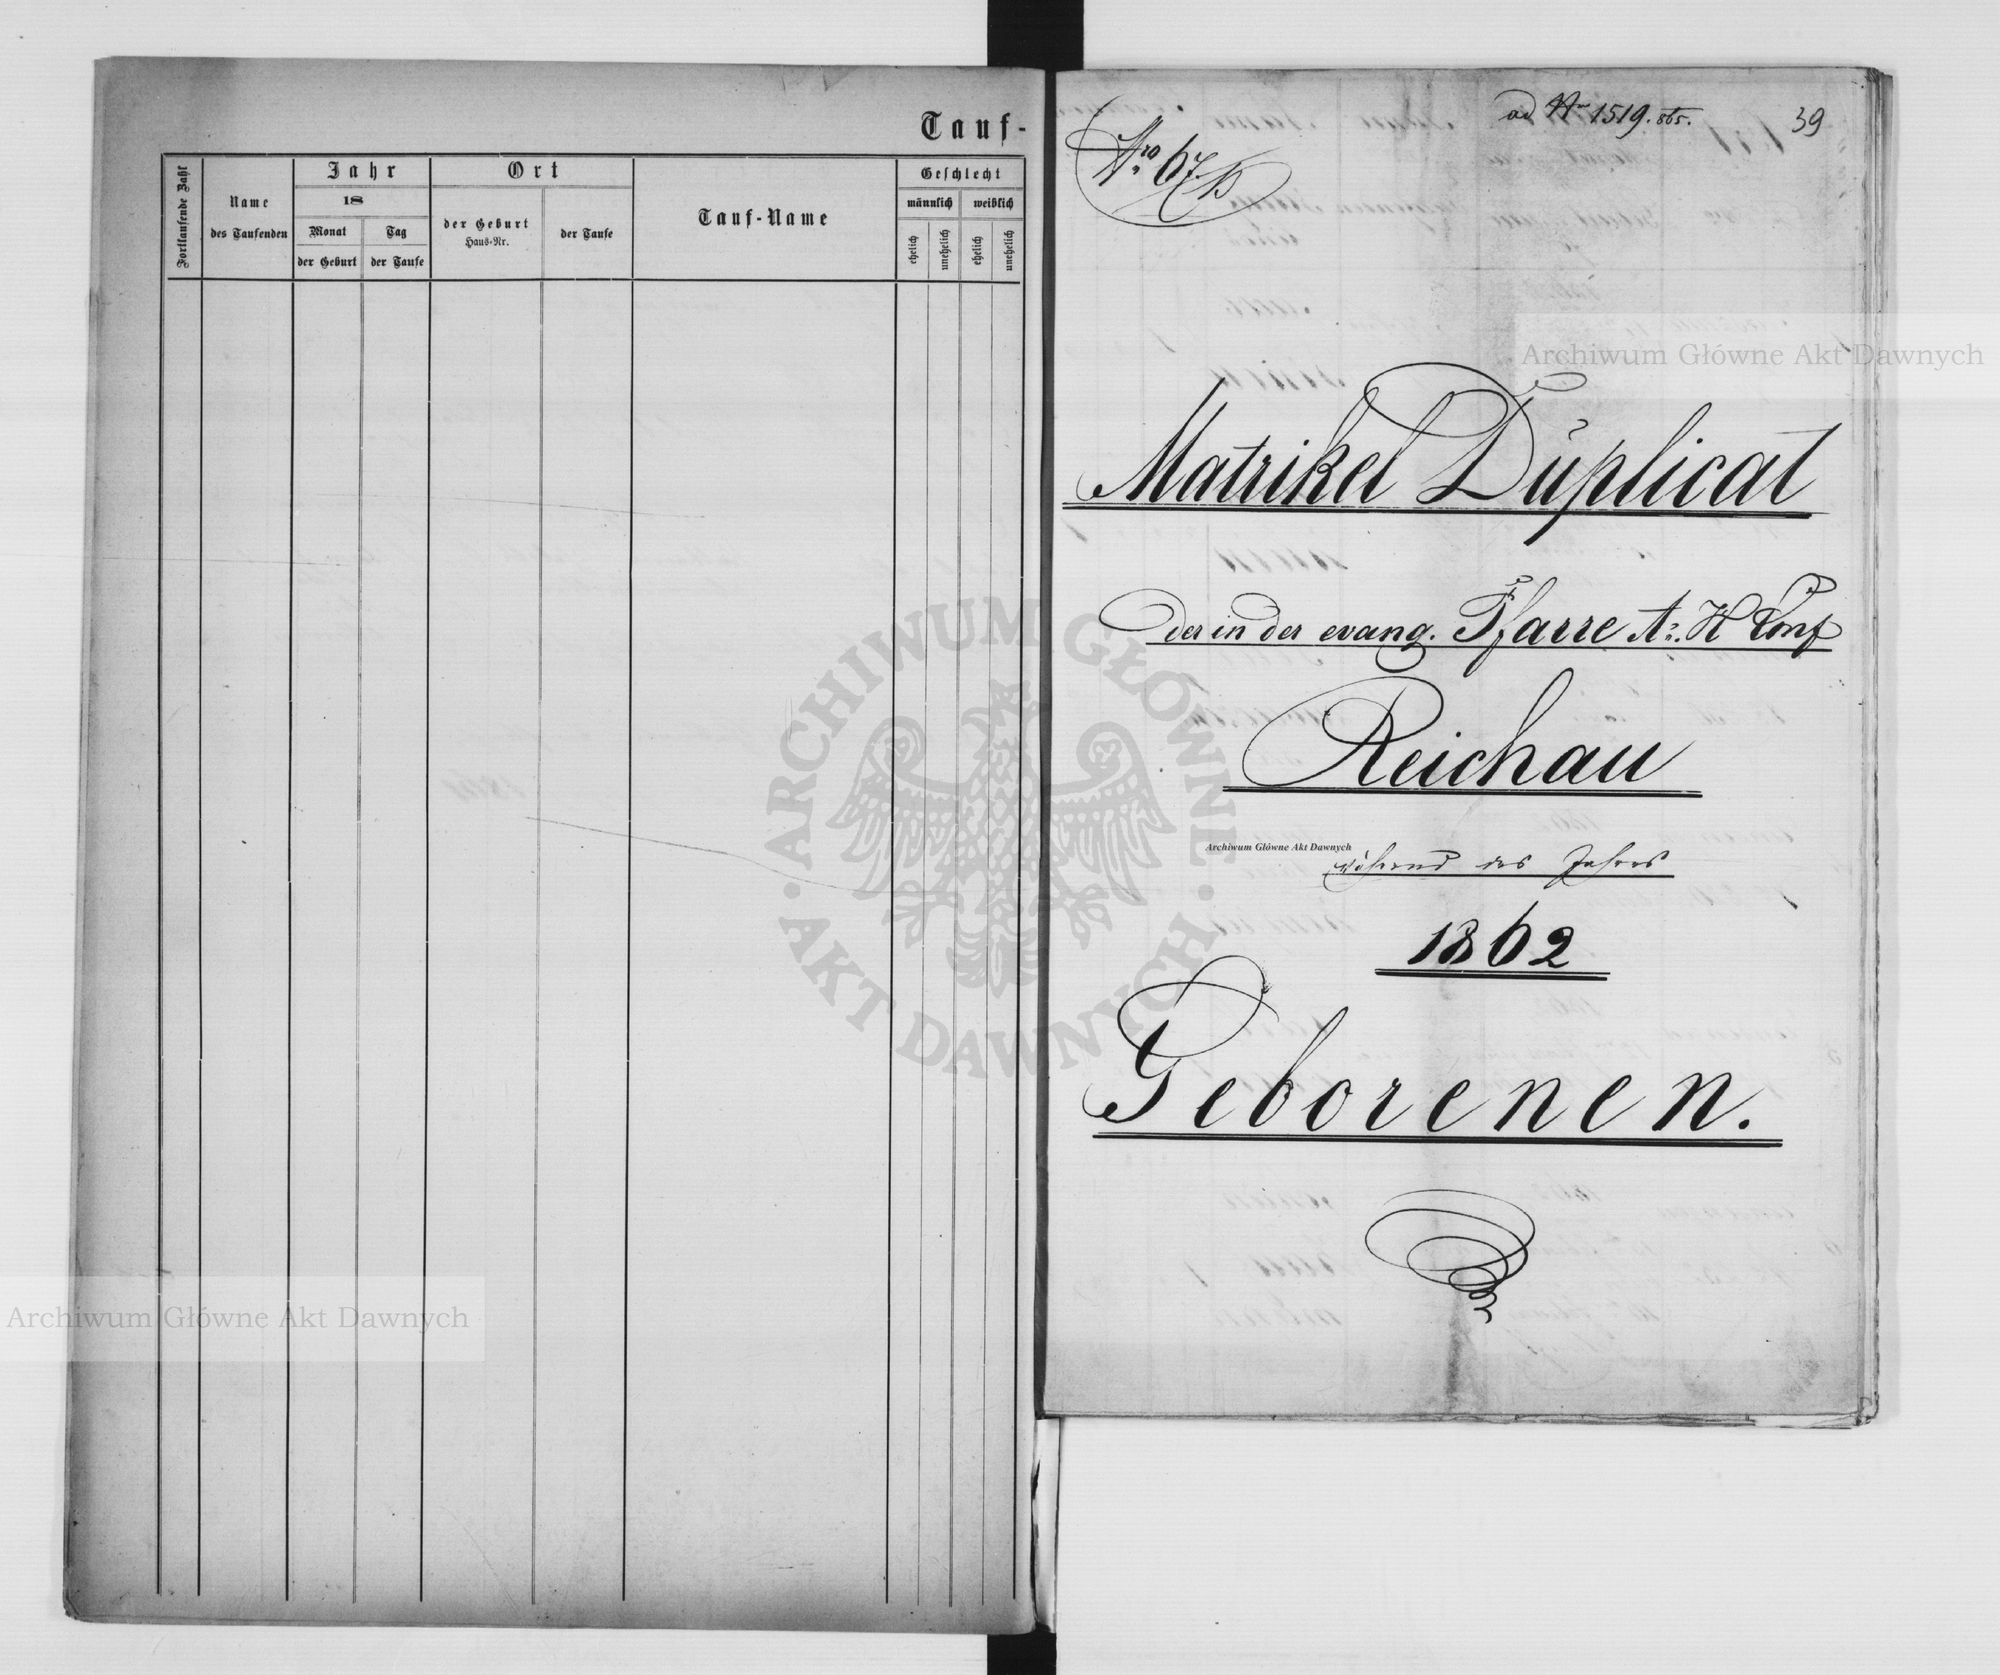 Tauf-
Fortlaufende Zahl
Name
des Taufenden
Jahr
18
Monat
der Geburt
Tag
der Taufe
Ort
der Geburt
Haus-Nr.
der Taufe
Tauf-Name
Geschlecht
männlich
weiblich
ehelich
unehelich
ehelich
unehelich
ad Nr 1519. 865.
39
Nro 67
Matrikel Dŭplicat
der in der evang. Pfarre A. H Conf
Reichau
während des Jahres
1862
Geborenen.
Archiwum Główne Akt Dawnych
Archiwum Główne Akt Dawnych
Archiwum Główne Akt Dawnych
ARCHIWUM GŁÓWNE · AKT DAWNYCH ·